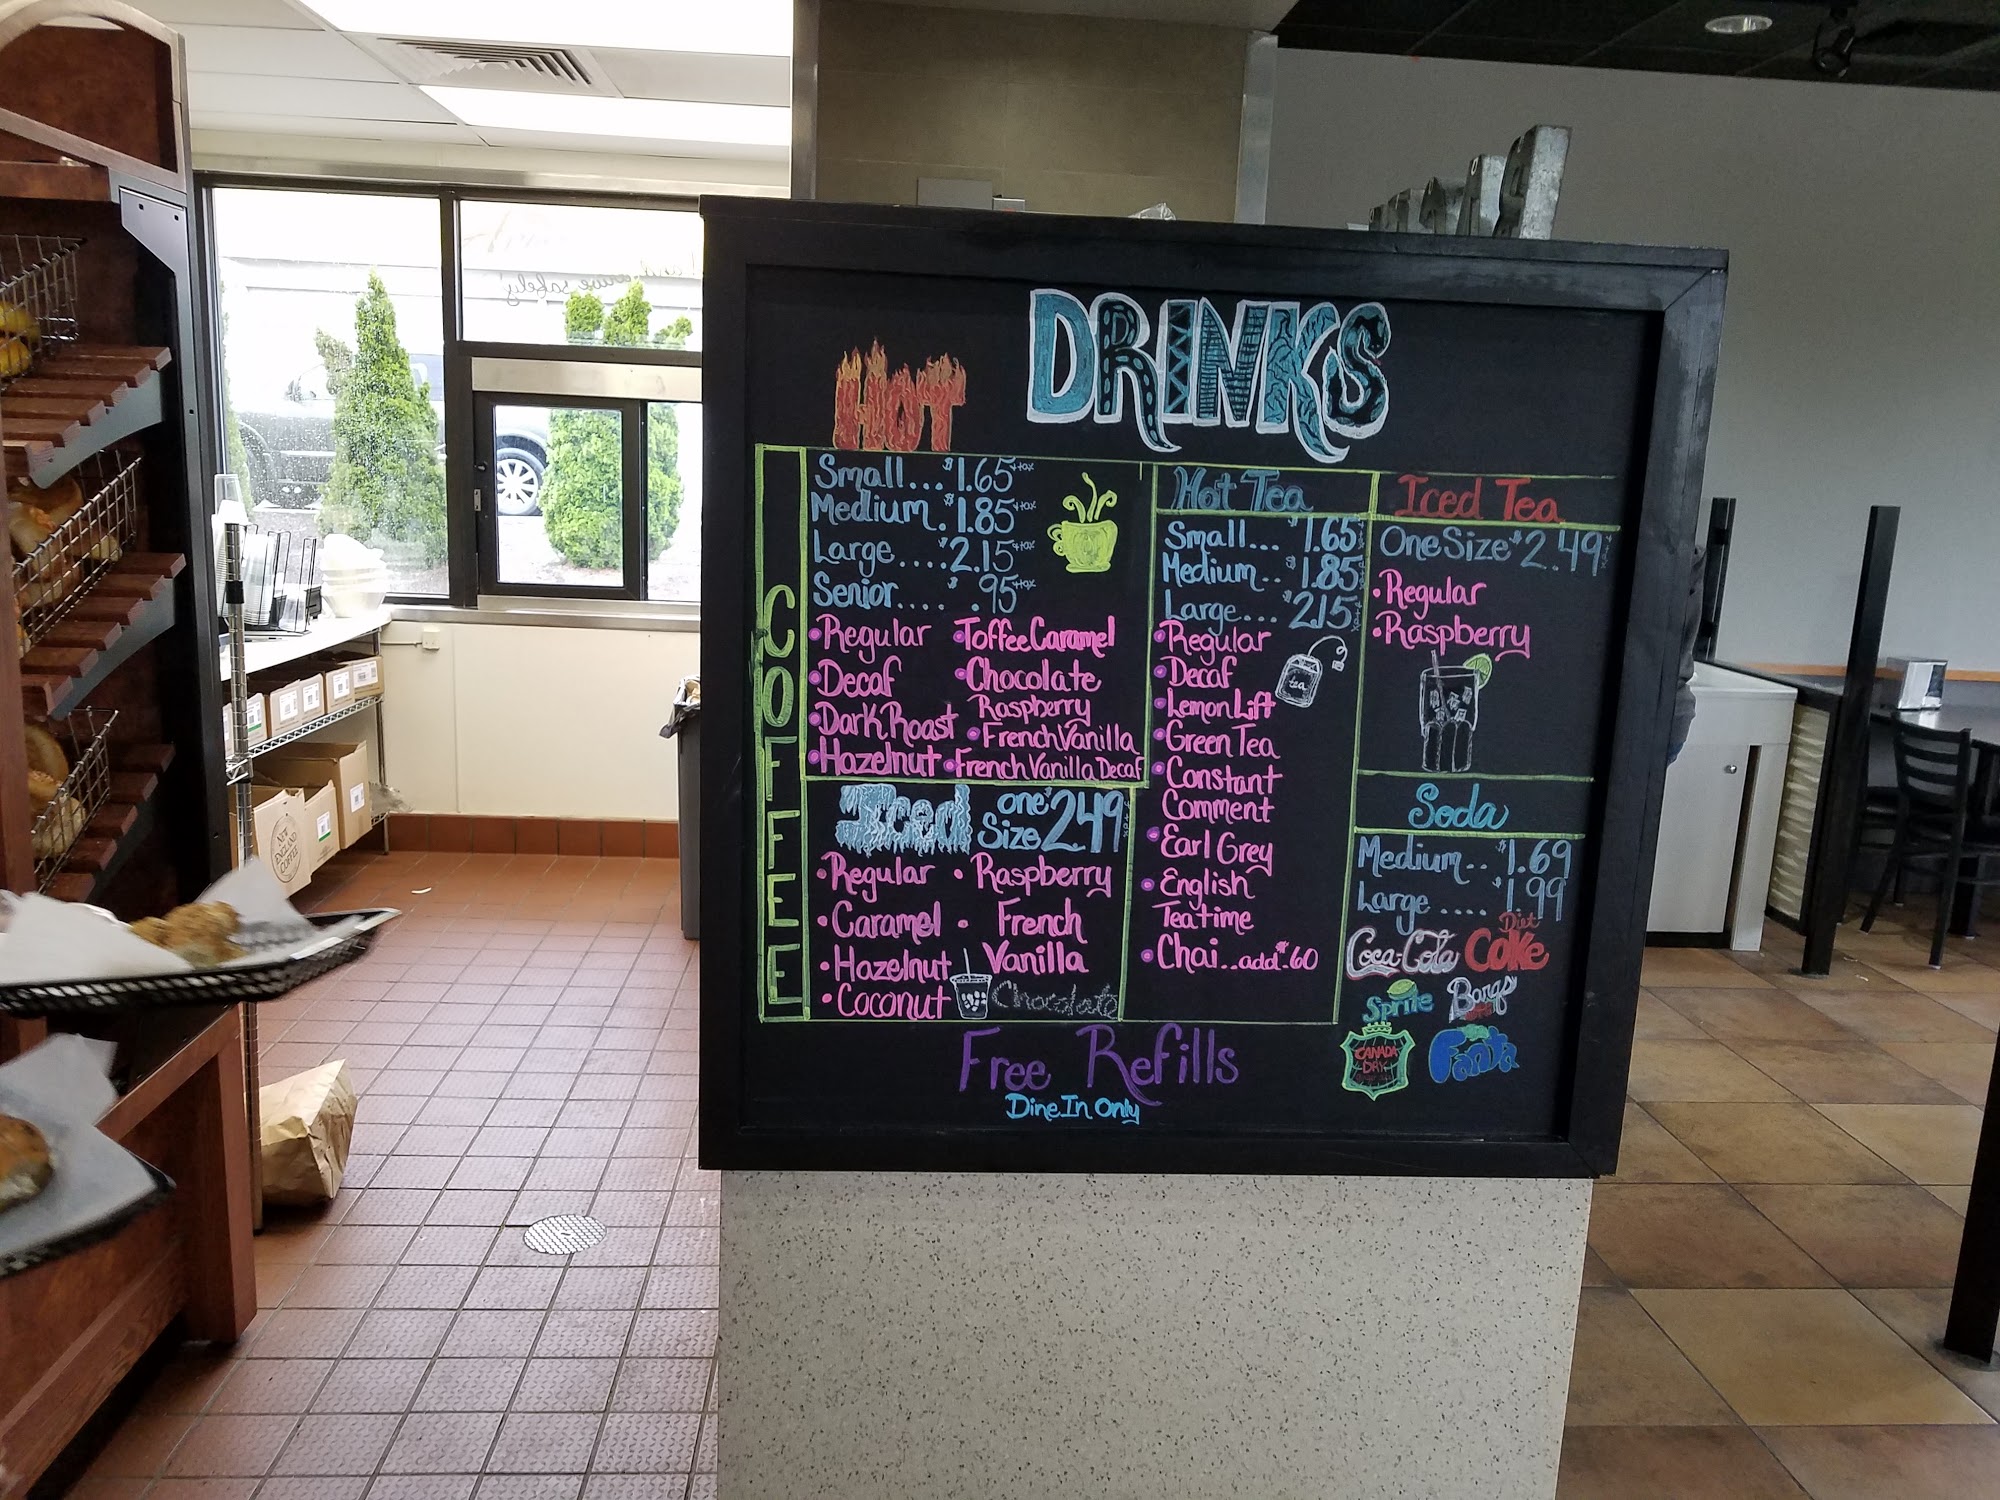 DRINKS
HOT
COFFEE
Small... $1.65 +tax
Medium. $1.85 +tax
Large.... $2.15 +tax
Senior.... .95 +tax
•Regular
•Decaf
•Dark Roast
•Hazelnut
•Toffee Caramel
•Chocolate
Raspberry
•French Vanilla
•French Vanilla Decaf
Iced one Size $2.49
•Regular
•Caramel
•Hazelnut
•Coconut
•Raspberry
•French
Vanilla
Chocolate
Hot Tea
Small... $1.65
Medium.. $1.85
Large... $2.15
•Regular
•Decaf
•Lemon Lift
•Green Tea
•Constant
Comment
•Earl Grey
•English
Teatime
•Chai..add $.60
tea
Iced Tea
One Size $2.49
•Regular
•Raspberry
Soda
Medium.. $1.69
Large .... $1.99
Coca-Cola
Diet
Coke
Sprite
Barqs
CANADA
DRY
Fanta
Free Refills
Dine In Only
NEW
ENGLAND
COFFEE